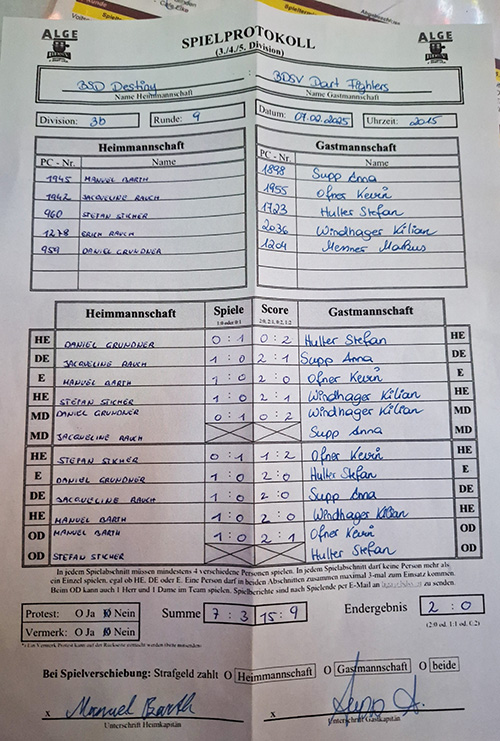 ALGE
SPIELPROTOKOLL
(3./4./5. Division)
ALGE
BSD Destiny : BDSV Dart Fighters
Name Heimmannschaft Name Gastmannschaft
Division: 3b Runde: 9 Datum: 07.02.2025 Uhrzeit: 2015
Heimmannschaft Gastmannschaft
PC - Nr. Name PC - Nr. Name
1945 MANUEL BARTH 1898 Supp Anna
1942 JACQUELINE RAUCH 1955 Ofner Kevin
960 STEFAN SICHER 1723 Hulter Stefan
1278 ERICH RAUCH 2036 Windhager Kilian
959 DANIEL GRUNDNER 1204 Messner Markus
Heimmannschaft Spiele Score Gastmannschaft
1:0 oder 0:1 2:0, 2:1, 0:2, 1:2
HE DANIEL GRUNDNER 0 : 1 0 : 2 Hulter Stefan HE
DE JACQUELINE RAUCH 1 : 0 2 : 1 Supp Anna DE
E MANUEL BARTH 1 : 0 2 : 0 Ofner Kevin E
HE STEFAN SICHER 1 : 0 2 : 1 Windhager Kilian HE
MD DANIEL GRUNDNER 0 : 1 0 : 2 Windhager Kilian MD
MD JACQUELINE RAUCH Supp Anna MD
HE STEFAN SICHER 0 : 1 1 : 2 Ofner Kevin HE
E DANIEL GRUNDNER 1 : 0 2 : 0 Hulter Stefan E
DE JACQUELINE RAUCH 1 : 0 2 : 0 Supp Anna DE
HE MANUEL BARTH 1 : 0 2 : 0 Windhager Kilian HE
OD MANUEL BARTH 1 : 0 2 : 1 Ofner Kevin OD
OD STEFAN SICHER Hulter Stefan OD
In jedem Spielabschnitt müssen mindestens 4 verschiedene Personen spielen. In jedem Spielabschnitt darf keine Person mehr als
ein Einzel spielen, egal ob HE, DE oder E. Eine Person darf in beiden Abschnitten zusammen maximal 3-mal zum Einsatz kommen.
Beim OD kann auch 1 Herr und 1 Dame im Team spielen. Spielberichte sind nach Spielende per E-Mail an zu senden.
Protest: O Ja O Nein Summe 7 : 3 15 : 9 Endergebnis 2 : 0
Vermerk: O Ja O Nein (2:0 od. 1:1 od. 0:2)
*) Ein Vermerk Protest kann auf der Rückseite
Bei Spielverschiebung: Strafgeld zahlt O Heimmannschaft O Gastmannschaft O beide
x Manuel Barth x Supp A.
Unterschrift Heimkapitän Unterschrift Gastkapitän